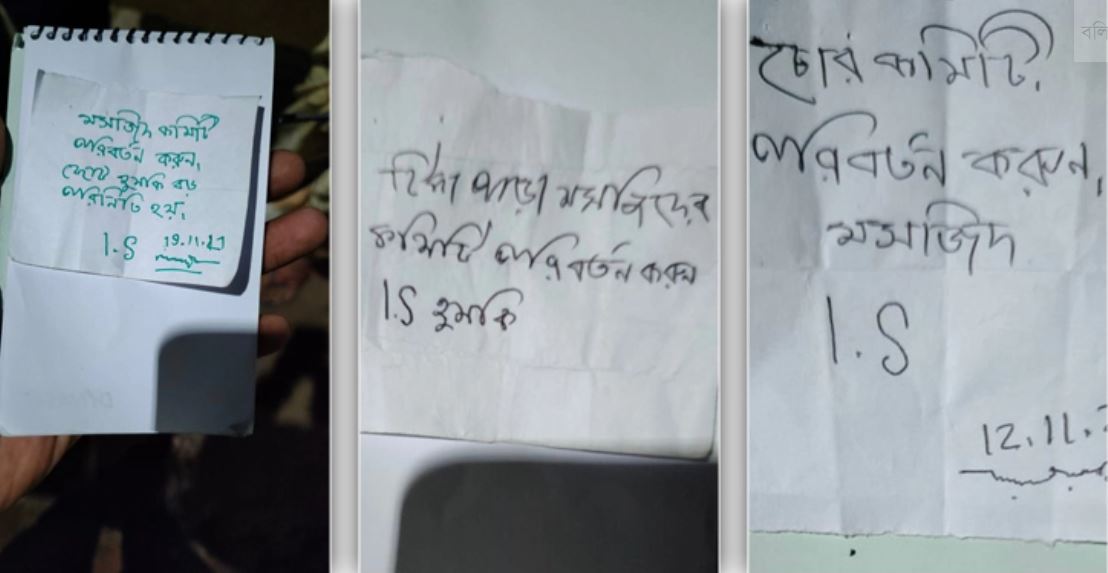 মসজিদ কমিটি
পরিবর্তন করুন,
ছোট হুমকি বড়
পরিনিতি হয়,
I.S 19.11.21
টিকা পাড়া মসজিদের
কমিটি পরিবর্তন করুন
I.S হুমকি
চোর কমিটি,
পরিবর্তন করুন,
মসজিদ
I.S
12.11.